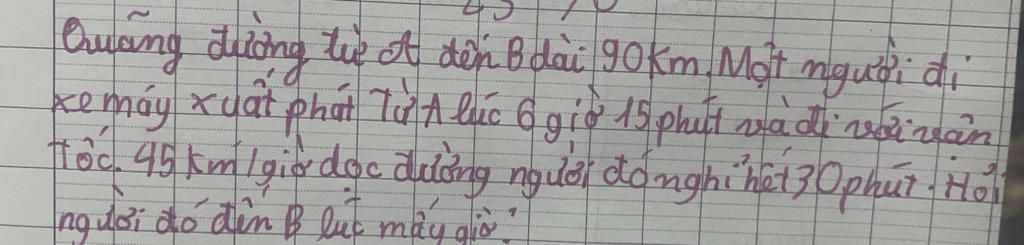 Quãng đường từ A đến B dài 90km. Một người đi
xe máy xuất phát từ A lúc 6 giờ 15 phút và đi với vận
tốc. 45 km/giờ dọc đường người đó nghỉ hết 30 phút. Hỏi
người đó đến B lúc mấy giờ?